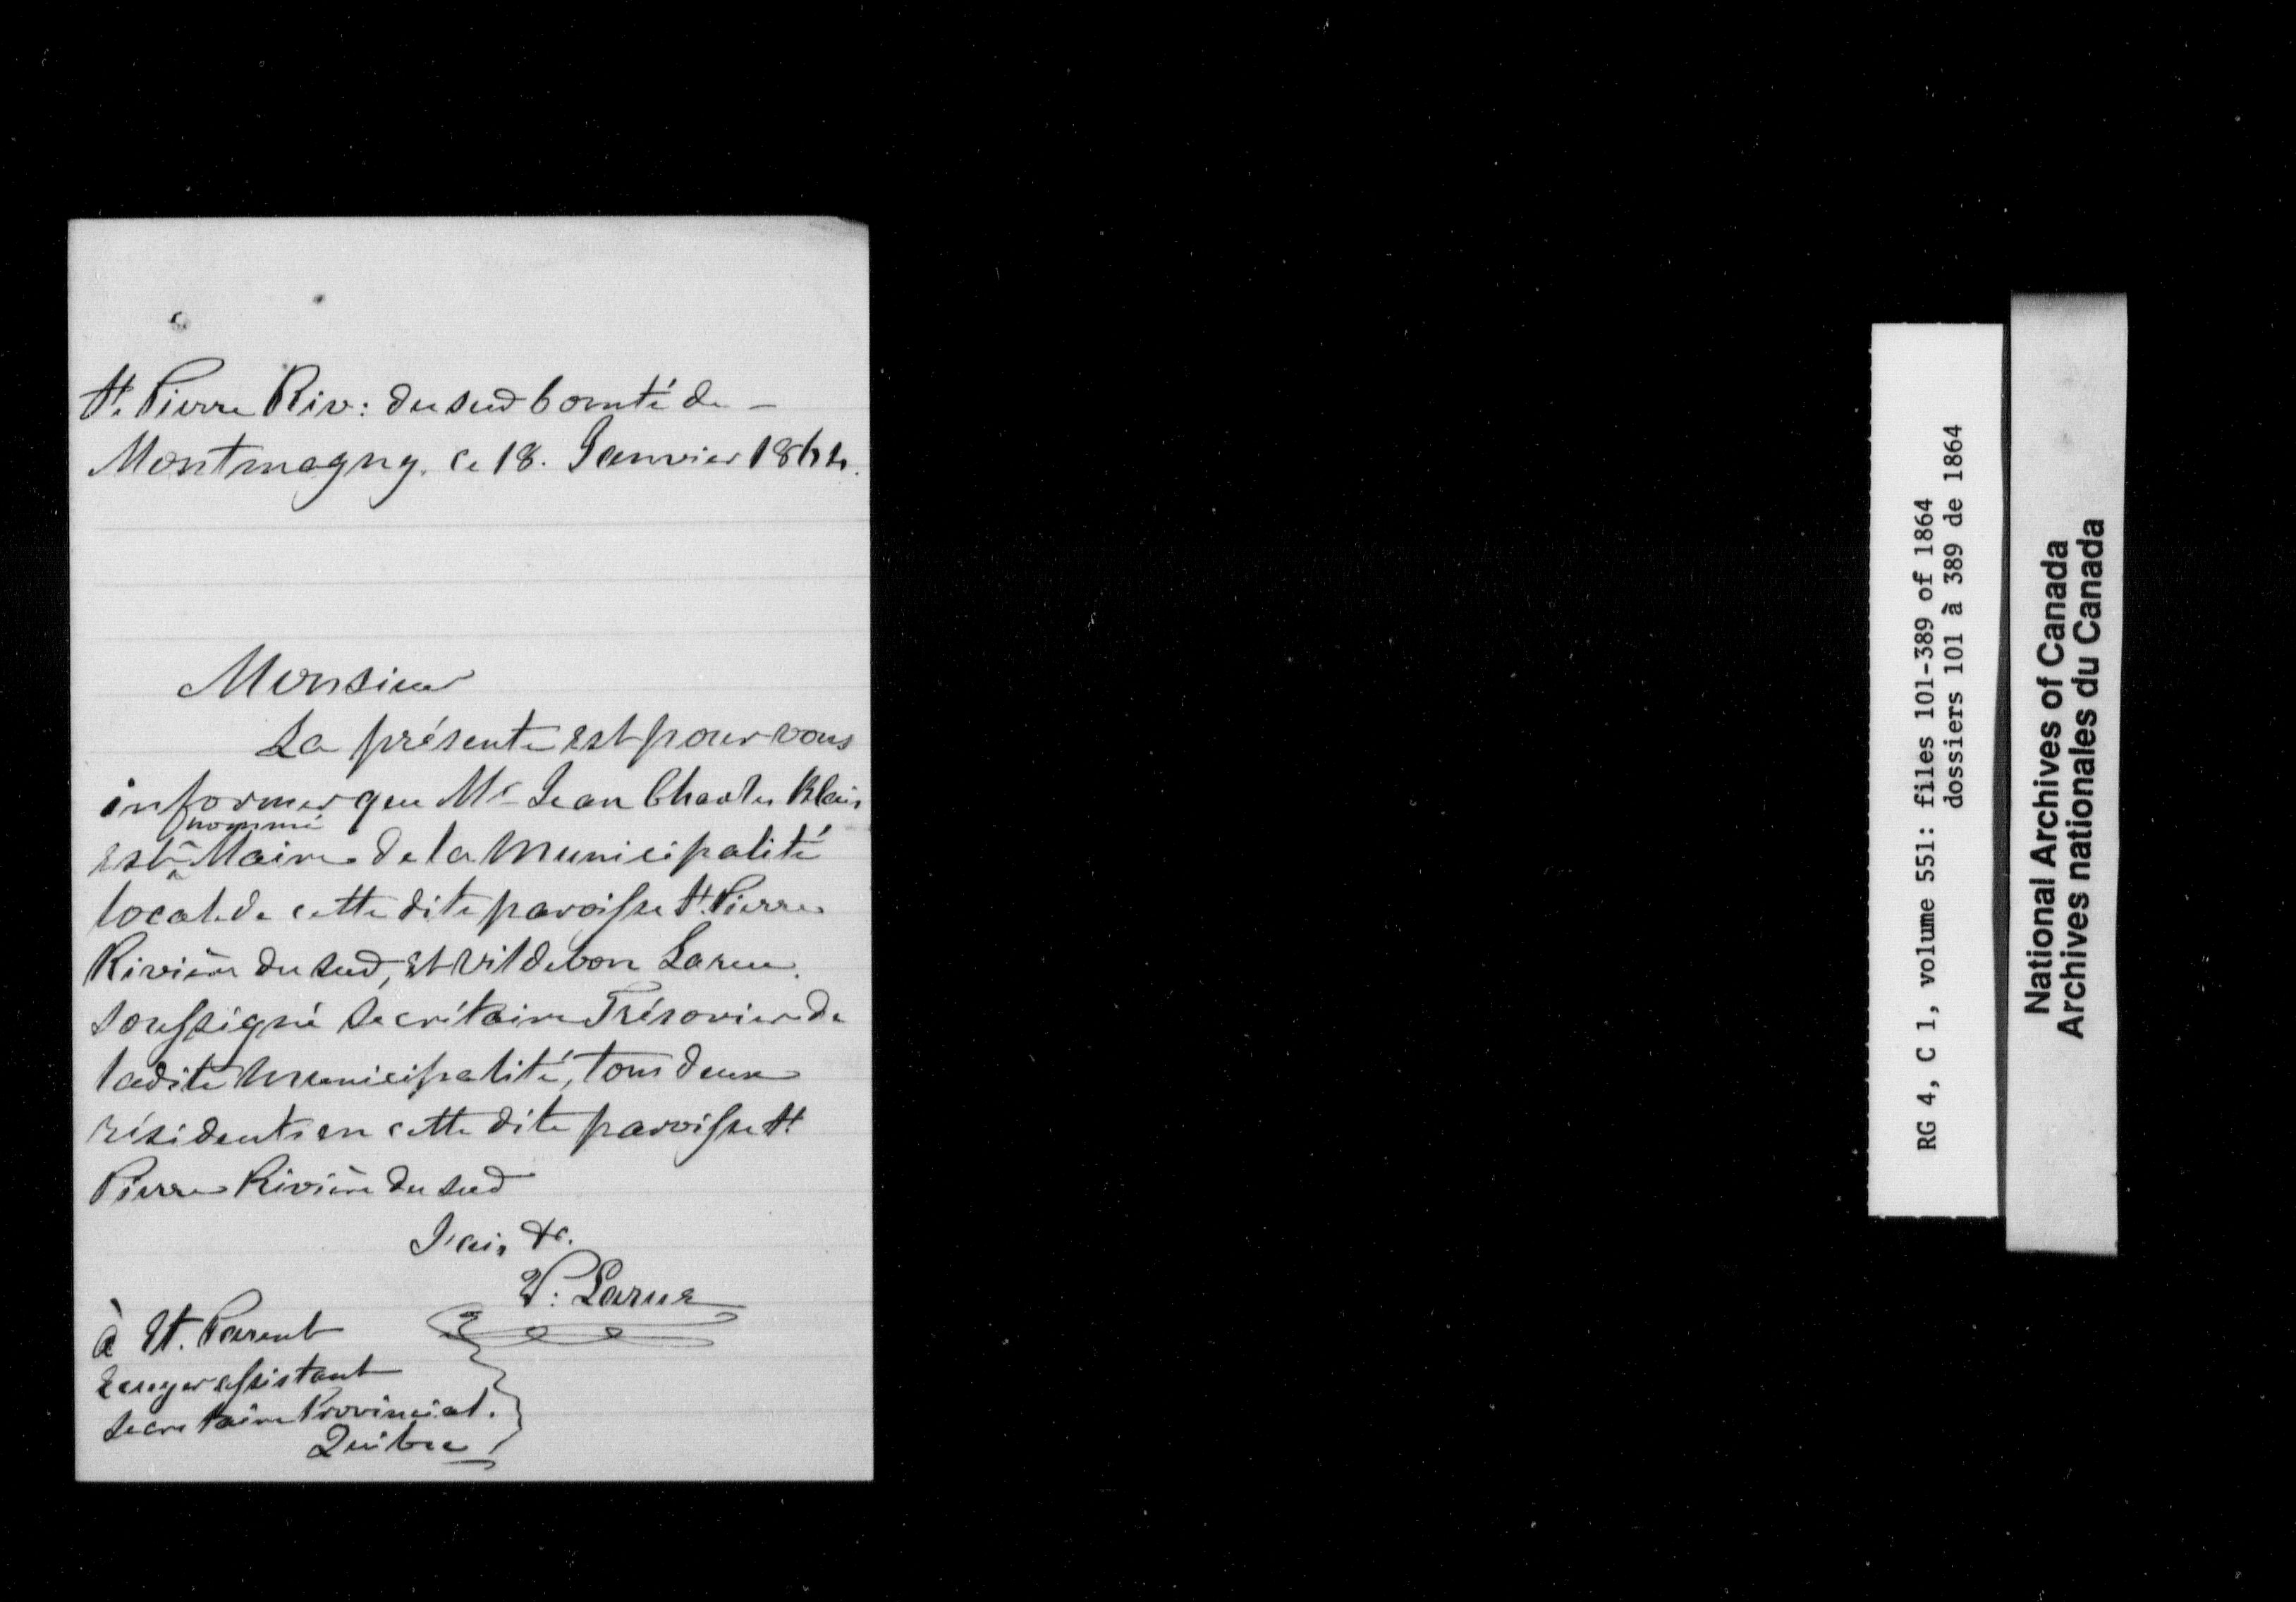 St. Pierre Riv: du sud Comté de –
Montmagny. ce 18. Janvier 1864.
Monsieur
La présente est pour vous
informer que Mr Jean Charles Blais
nommé
est Maire de la Municipalité
local de cette dite paroisse St. Pierre
Rivière du Sud, et Vildebon Larue.
soussigné Secrétaire Trésorier de
ladite Municipalité, tous deux
résidents en cette dite paroisse St.
Pierre Rivière du Sud
J'ai, &c.
V: Larue
à Et. Parent
Ecuyer assistant
Secretaire Provincial.
Québec
RG 4, C 1, volume 551: files 101-389 of 1864
dossiers 101 à 389 de 1864
National Archives of Canada
Archives nationales du Canada